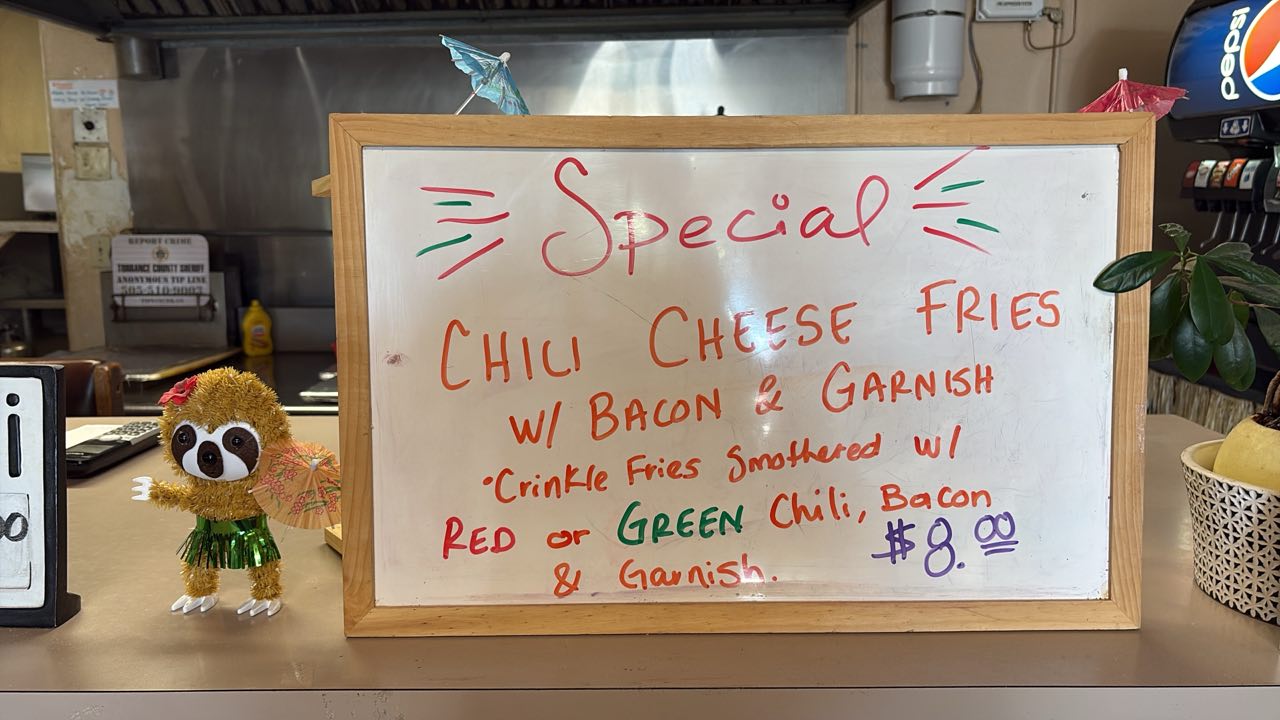 Special
CHILI CHEESE FRIES
W/ BACON & GARNISH
•Crinkle Fries Smothered w/
RED or GREEN Chili, Bacon
& Garnish.
$8.00
pepsi
REPORT CRIME
TORRANCE COUNTY SHERIFF
ANONYMOUS TIP LINE
505-510-9007
i
00